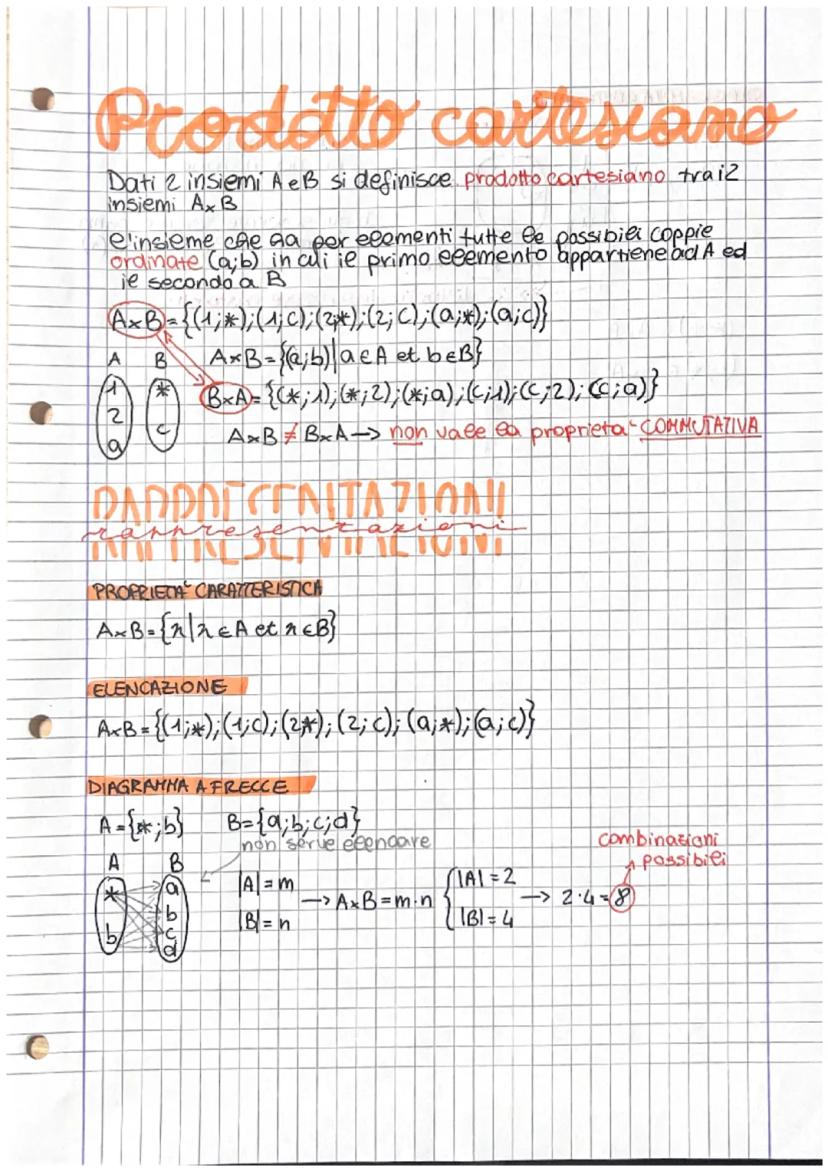 Prodotto cartesiano
Dati 2 insiemi A e B si definisce prodotto cartesiano tra i 2
insiemi A×B
l'insieme che ha per elementi tutte le possibili coppie
ordinate (a;b) in cui il primo elemento appartiene ad A ed
il secondo a B
A×B={(1;*);(1;c);(2;*);(2;c);(a;*);(a;c)}
A B A×B={(a;b)|a∈A et b∈B}
1 * B×A={(*;1);(*;2);(*;a);(c;1);(c;2);(c;a)}
2 c
a A×B≠B×A→ non vale la proprietà COMMUTATIVA
RAPPRESENTAZIONI
rappresentazioni
PROPRIETA' CARATTERISTICA
A×B={x|x∈A et x∈B}
ELENCAZIONE
A×B={(1;*);(1;c);(2*);(2;c);(a;*);(a;c)}
DIAGRAMMA A FRECCE
A={*;b} B={a;b;c;d}
non serve elencare
combinazioni
possibili
A B
* a
b b
c
d
|A|=m
|B|=n
→A×B=m·n
{|A|=2
|B|=4
→ 2·4=8